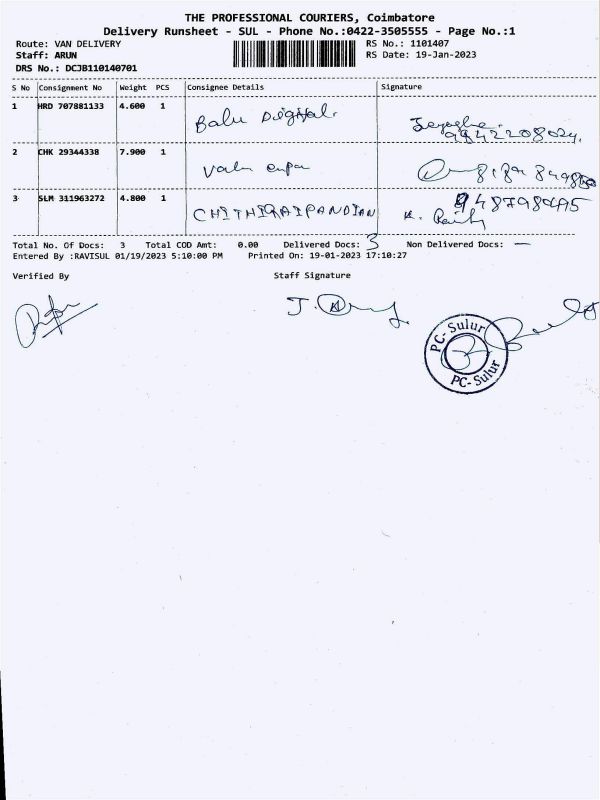 THE PROFESSIONAL COURIERS, Coimbatore
Delivery Runsheet - SUL - Phone No.:0422-3505555 - Page No.:1
Route: VAN DELIVERY RS No.: 1101407
Staff: ARUN RS Date: 19-Jan-2023
DRS No.: DCJB110140701
S No Consignment No Weight PCS Consignee Details Signature
1 HRD 707881133 4.600 1 Balu Digital.
2 CHK 29344338 7.900 1
3 SLM 311963272 4.800 1 CHITHIRAIPANDIAN
Total No. Of Docs: 3 Total COD Amt: 0.00 Delivered Docs: 3 Non Delivered Docs: —
Entered By :RAVISUL 01/19/2023 5:10:00 PM Printed On: 19-01-2023 17:10:27
Verified By Staff Signature
PC-Sulur
PC-Sulur